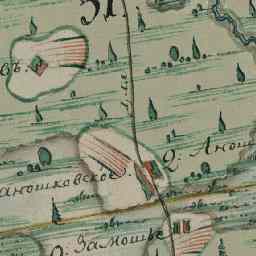 31
въ
2. Анош
аношковское.
2. Замошье